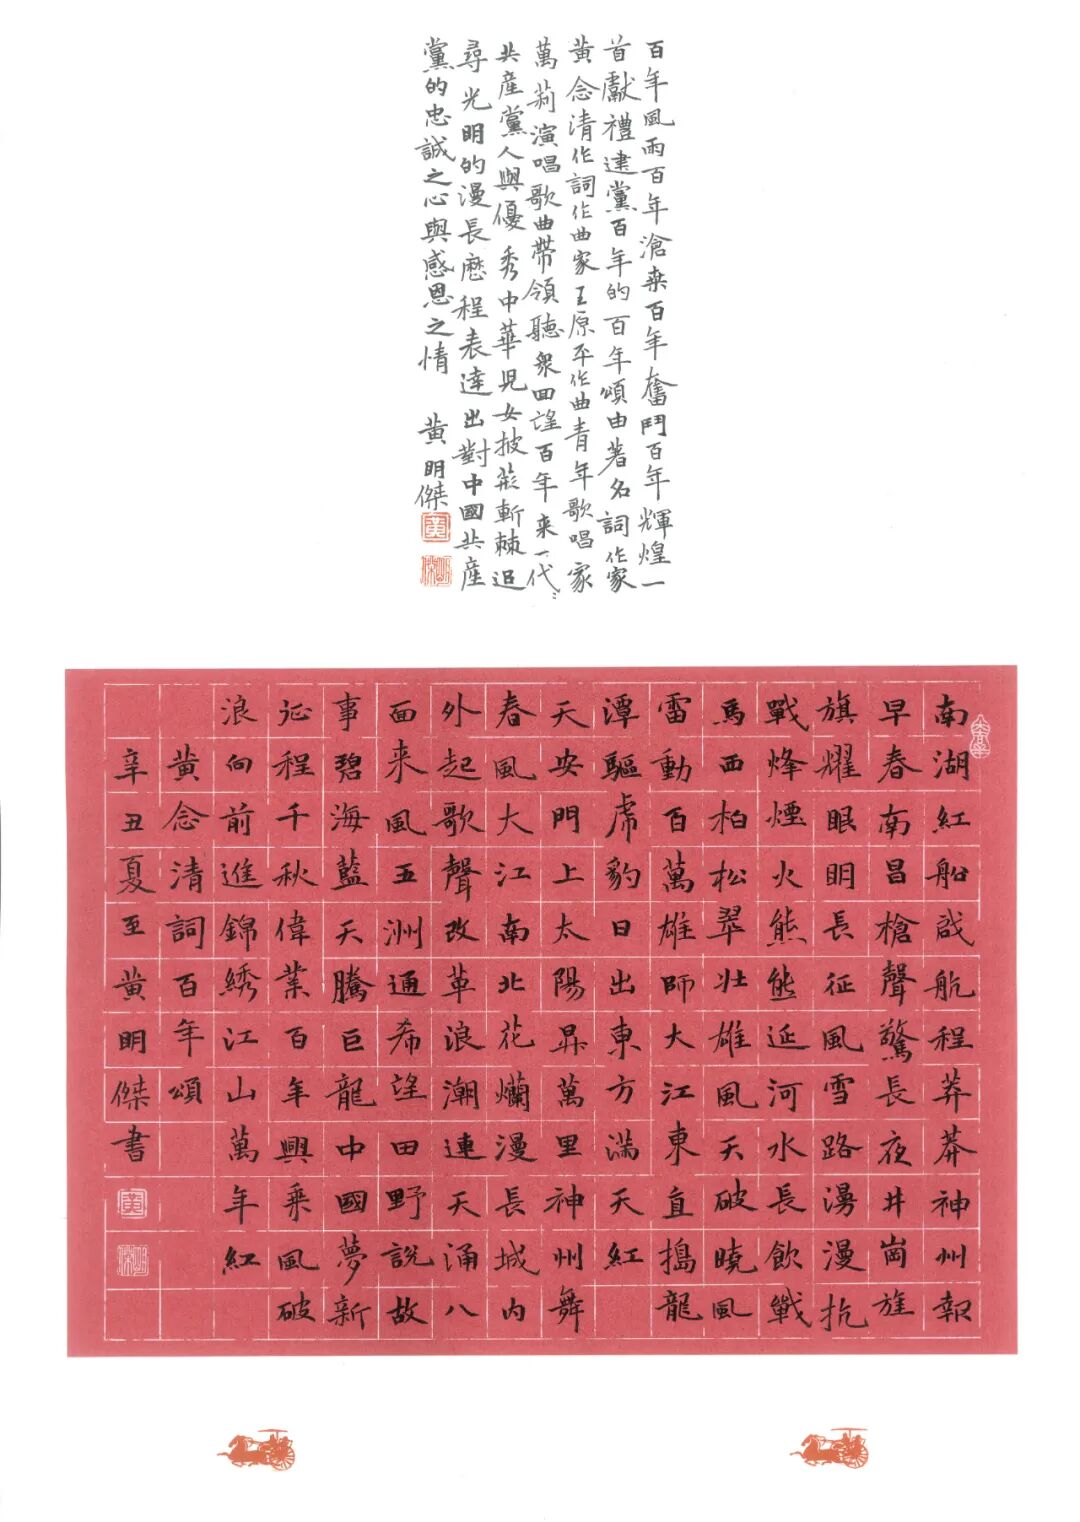 百年風雨百年滄桒百年奮鬥百年輝煌一
首獻禮建黨百年的百年頌由著名詞作家
黄念清作詞作曲家王原平作曲青年歌唱家
萬莉演唱歌曲帶領聽衆回望百年来一代
共産黨人與優秀中華児女披荊斬棘追
尋光明的漫長歷程表達出對中國共産
黨的忠誠之心與感恩之情 黄明傑
黄
南湖紅船啟航程莽莽神州報
早春南昌槍聲驚長夜井崗旌
旗耀眼明長征風雪路漫漫抗
戰烽煙火熊熊延河水長飲戰
馬西柏松翠壯雄風天破曉風
雷動百萬雄師大江東直搗龍
潭驅虎豹日出東方滿天紅
天安門上太陽昇萬里神州舞
春風大江南北花爛漫長城内
外起歌聲改革浪潮連天涌八
面来風五洲通希望田野説故
事碧海藍天騰巨龍中國夢新
征程千秋偉業百年興乘風破
浪向前進錦綉江山萬年紅
黄念清詞百年頌
辛丑夏至黄明傑書
黄